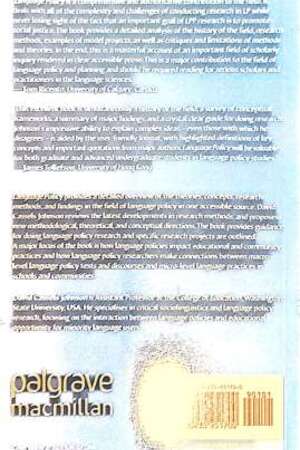 with all of the complexity and challenges of conducting research in LP while
never losing sight of the fact that an important goal of LPP research is to promote
social justice. The book provides a detailed analysis of the history of the field, research
methods, examples of model projects, as well as critiques and limitations of methods
and theories. In the end, this is a masterful account of an important field of scholarly
inquiry rendered in clear accessible prose. This is a major contribution to the field of
language policy and planning and should be required reading for serious scholars and
practitioners in the language sciences.
—Tom Ricento, University of Calgary, Canada
history of the field, a survey of conceptual
frameworks, a summary of major findings, and a crystal clear guide for doing research.
Johnson's impressive ability to explain complex ideas – even those with which he
disagrees – is aided by the user-friendly format, with highlighted definitions of key
concepts and important quotations from major authors. Language Policy will be valuable
for both graduate and advanced undergraduate students in language policy studies.
—James Tollefson, University of Hong Kong
Language Policy provides a detailed overview of the theories, concepts, research
methods, and findings in the field of language policy in one accessible source. David
Cassels Johnson reviews the latest developments in research methods, and proposes
new methodological, theoretical, and conceptual directions. The book provides guidance
for doing language policy research and specific research projects are outlined.
A major focus of the book is how language policies impact educational and community
practices and how language policy researchers make connections between macro-
level language policy texts and discourses and micro-level language practices in
schools and communities.
David Cassels Johnson is Assistant Professor at the College of Education, Washington
State University, USA. He specialises in critical sociolinguistics and language policy
research, focusing on the interaction between language policies and educational
opportunity for minority language users.
palgrave
macmillan
90101